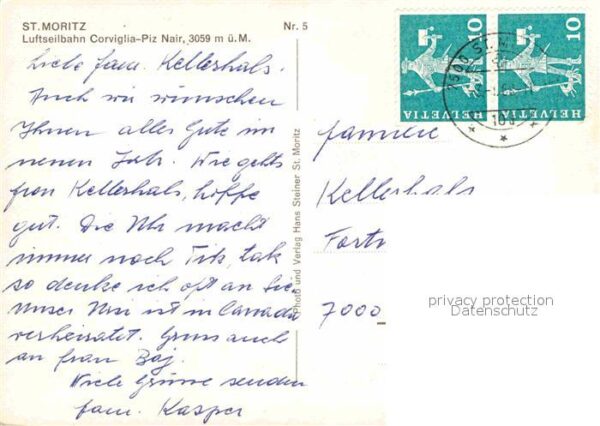 ST. MORITZ Nr. 5
Luftseilbahn Corviglia-Piz Nair, 3059 m ü.M.
Liebe fam. Kellerhals.
Auch wir wünschen
Ihnen alles Gute im
neuen Jahr. Wie gehts
frau Kellerhals, hoffe
gut. Die Uhr macht
immer noch Tik, tak
so denke ich oft an Sie
Unser Ursi ist in Canada
verheiratet. Gruss auch
an frau Baj.
Viele Grüsse senden
fam. Kasper
Photo und Verlag Hans Steiner St. Moritz
familie
Kellerhals
7000
privacy protection
Datenschutz
10
HELVETIA
10
HELVETIA
7500 ST. M